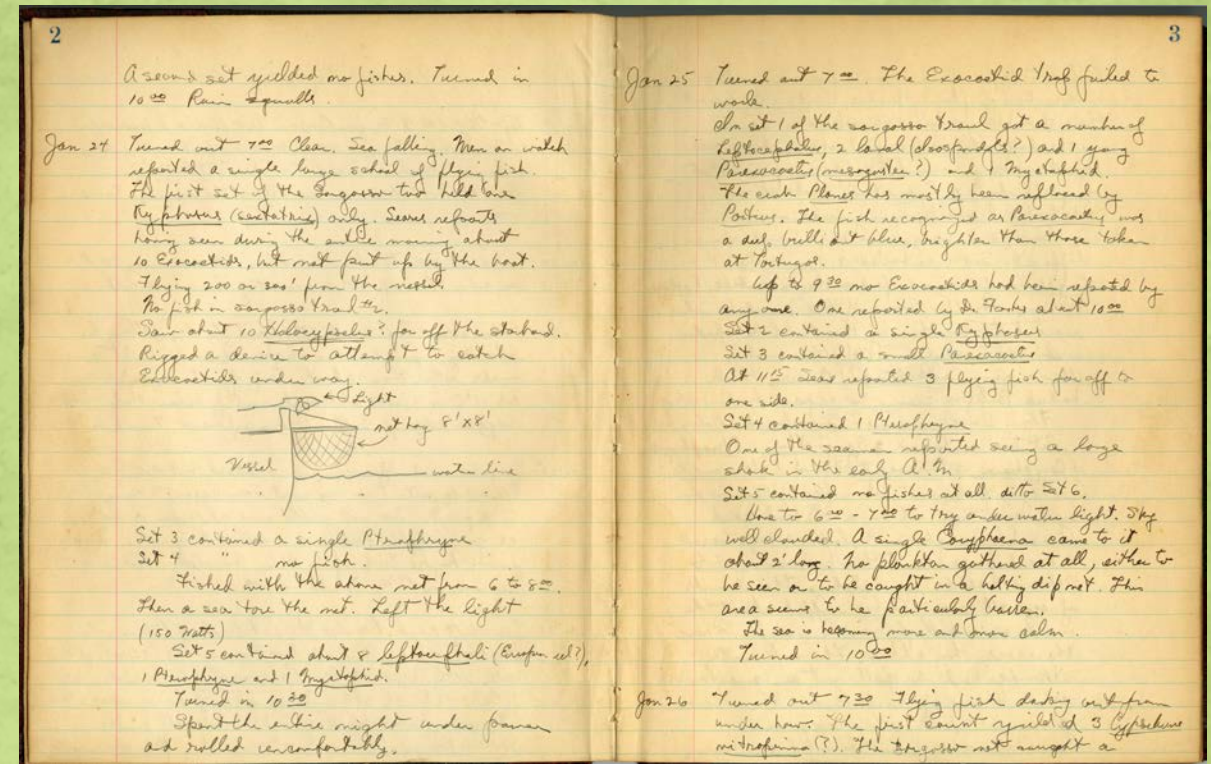 2
A second set yielded no fishes. Turned in
10 00 Rain squalls.
Jan 24 Turned out 7 00 Clear. Sea falling. Men on watch
reported a single large school of flying fish.
The first set of the Sargosso tow held one
Kyphosus (sectatrix) only. Sears reports
having seen during the entire morning about
10 Exocoetids, but not put up by the boat.
Flying 200 or 300' from the vessel.
No fish in sargosso trawl #2.
Saw about 10 Halocypselus? far off the starboard.
Rigged a device to attempt to catch
Exocoetids under way.
Light
net bag 8' x 8'
Vessel
water line
Set 3 contained a single Pterophryne
Set 4 " no fish.
Fished with the above net from 6 to 8 00.
Then a sea tore the net. Left the light
(150 Watts)
Set 5 contained about 8 leptocephali (European eel?),
1 Pterophryne and 1 Myctophid.
Turned in 10 30
Spent the entire night under power
and rolled uncomfortably.
3
Jan 25 Turned out 7 00. The Exocoetid trap failed to
work.
In set 1 of the sargosso trawl got a number of
Leptocephalus, 2 larval and 1 young
Parexocoetus (mesogaster?) and 1 Myctophid.
The crab Planes has mostly been replaced by
The fish recognized as Parexocoetus was
a deep brilliant blue, brighter than those taken
at Tortugas.
Up to 9 30 no Exocoetids had been reported by
any one. One reported by Dr. about 10 00
Set 2 contained a single Kyphosus
Set 3 contained a small Parexocoetus
At 11 15 Sears reported 3 flying fish far off to
one side.
Set 4 contained 1 Pterophryne
One of the seamen reported seeing a large
shark in the early A.M.
Set 5 contained no fishes at all. ditto Set 6.
Hove to 6 00 - 7 00 to try under water light. Sky
well clouded. A single Coryphaena came to it
about 2' long. No plankton gathered at all, either to
be seen or to be caught in a bolting dip net. This
area seems to be particularly barren.
The sea is becoming more and more calm.
Turned in 10 00
Jan 26 Turned out 7 30 Flying fish darting out from
under bow. The first count yielded 3 Cypselurus
(?). The sargosso net caught a